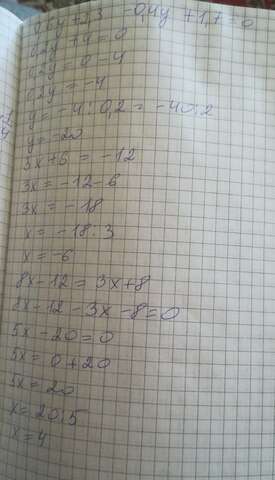 +2,3 -0,4y +1,7=0
0,2y + 4 = 0
0,2y = 0 - 4
0,2y = -4
y = -4 : 0,2 = -40:2
y = -20
3x+6 = -12
3x = -12-6
3x = -18
x = -18:3
x = -6
8x-12 = 3x+8
8x-12-3x-8=0
5x -20=0
5x = 0+20
5x = 20
x=20:5
x=4